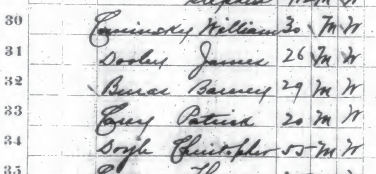 30 Caminsky William 30 M W
31 Dooley James 26 M W
32 Burns Barney 29 M W
33 Carey Patrick 20 M W
34 Doyle Christopher 55 M W
35